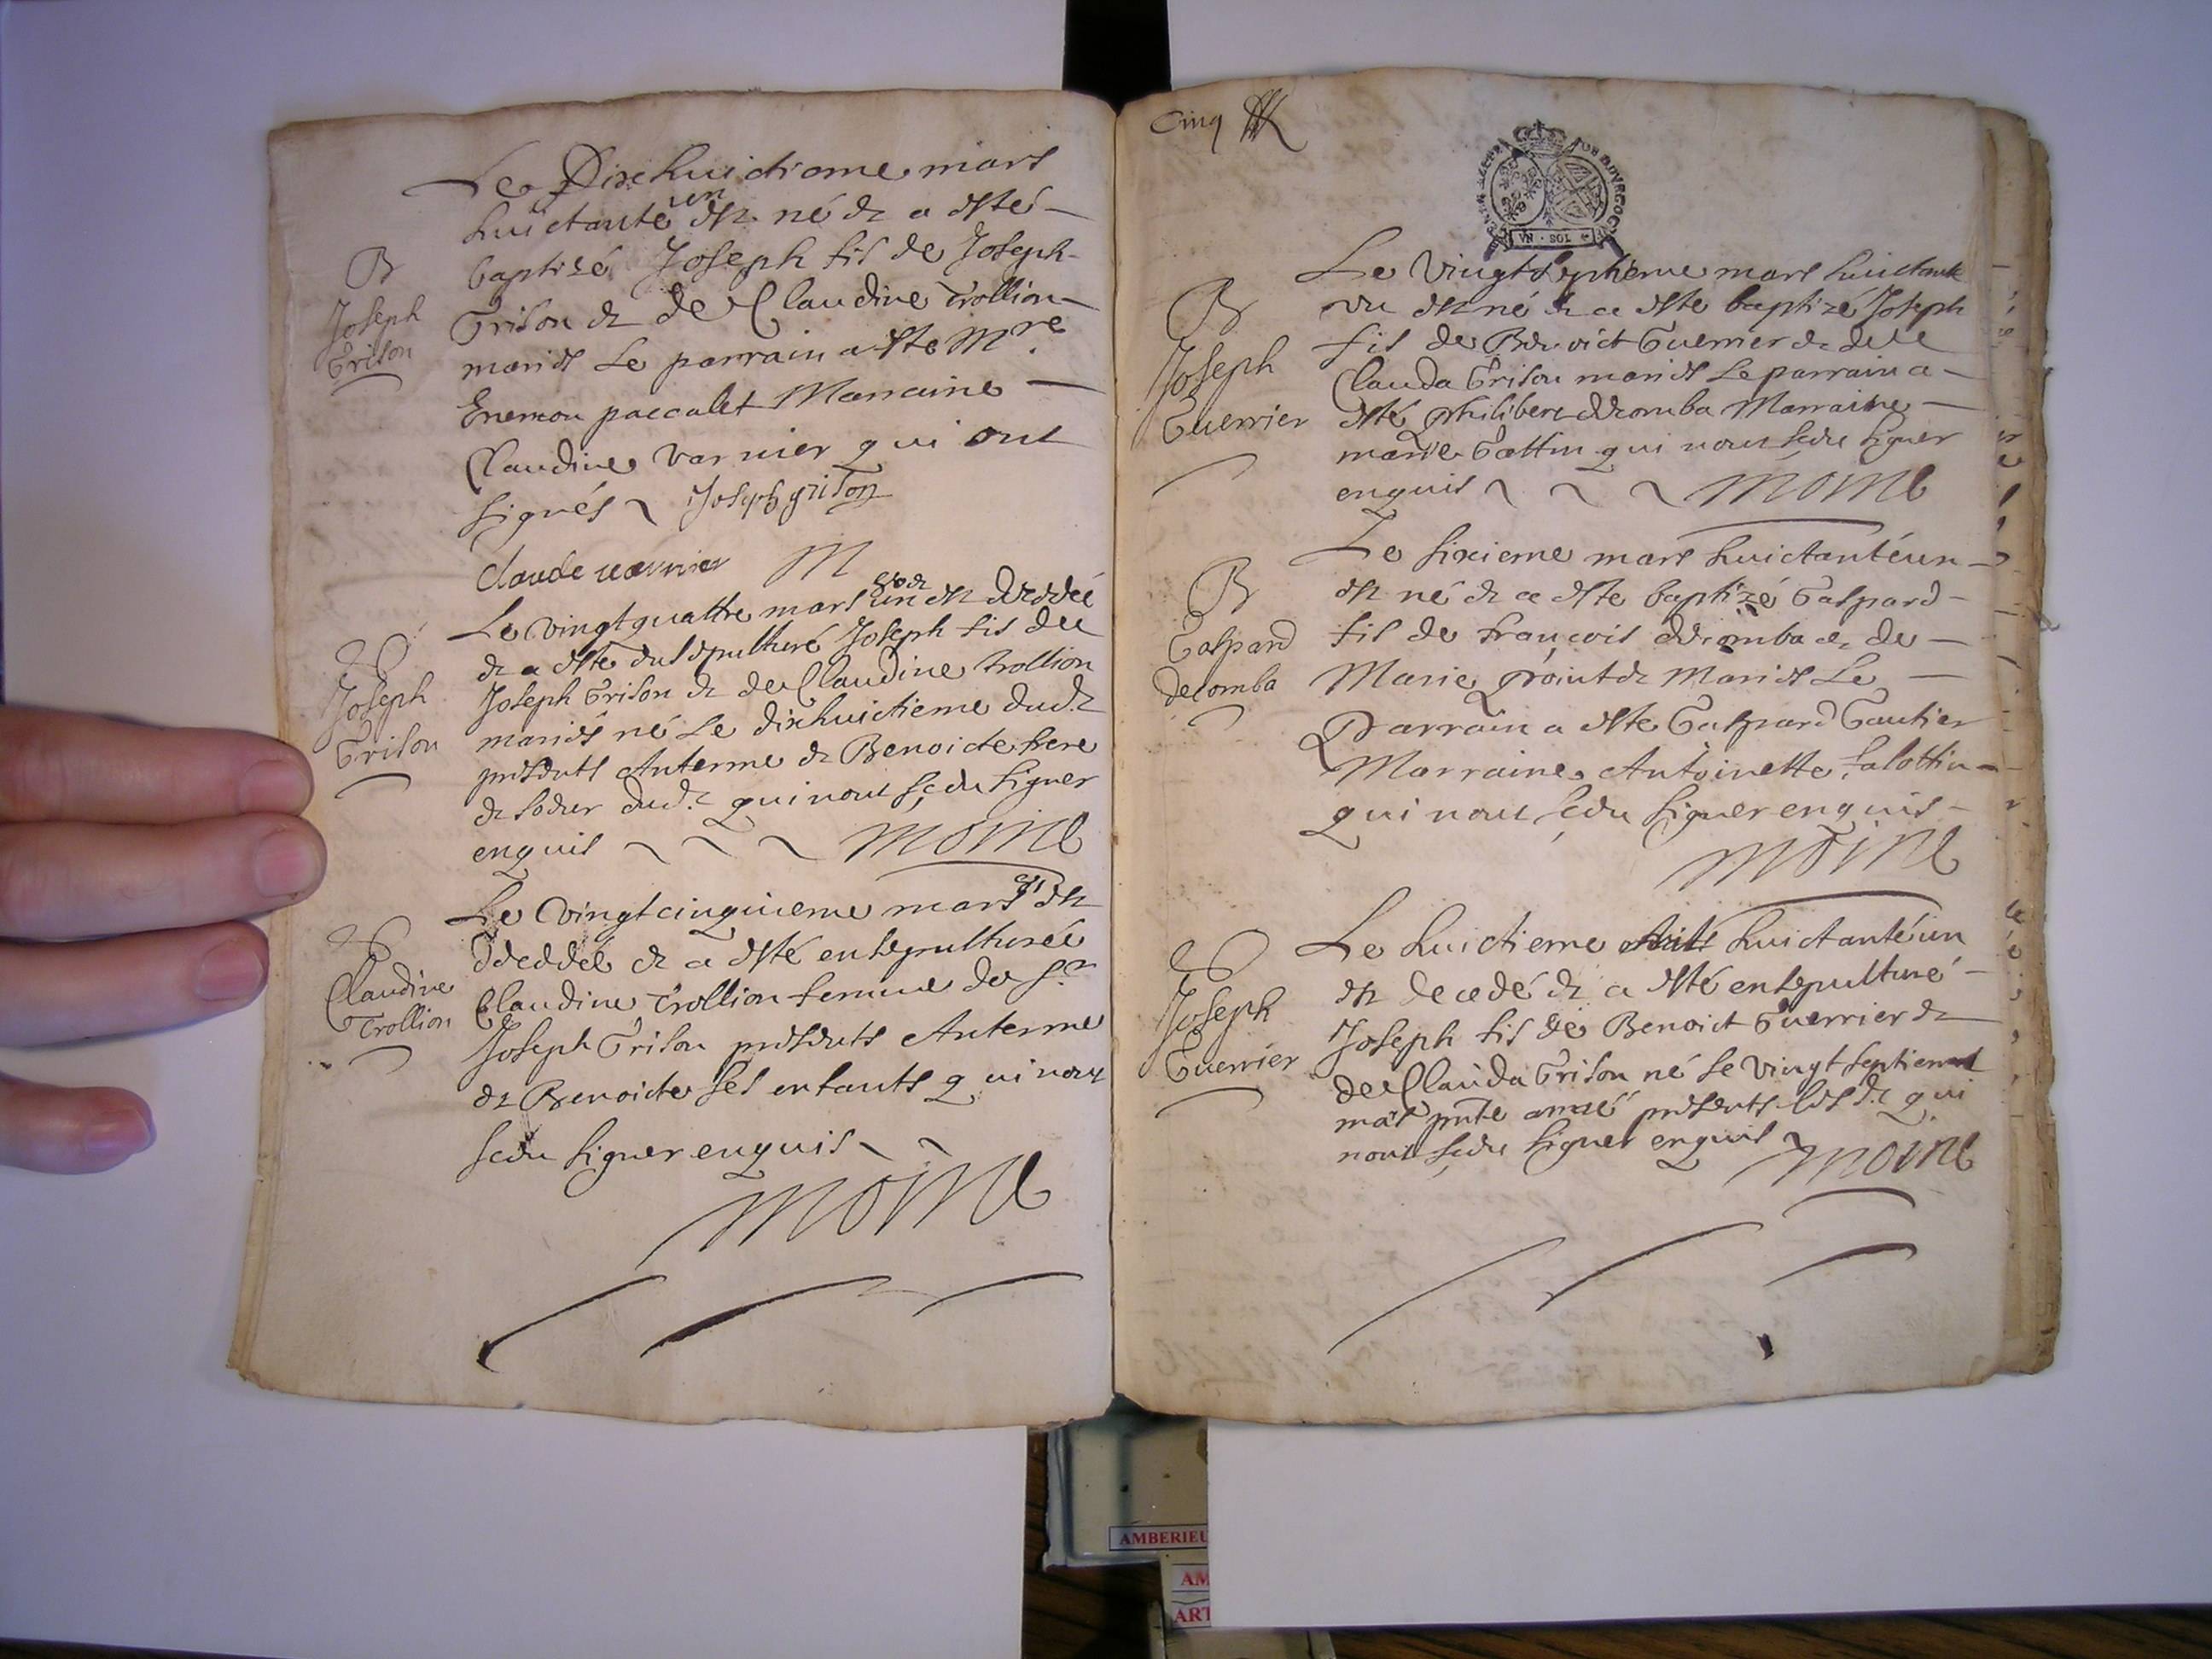 Le Dixhuictieme mars
huictante un est né et a esté
B
Joseph
Grison
baptisé Joseph fils de Joseph
Grison et de Claudine Trollion
mariés Le parrain a este Mre
Enemon paccalet Marraine
Claudine varnier qui ont
signés Joseph grison
Claude varnier M
Le vingtquattre mars un est decedé
et a esté ensepulturé Joseph fils de
Joseph
Grison
Joseph Grison et de Claudine trollion
mariés né Le dixhuictieme dud.
presents Anterme et Benoicte frere
et soeur dud. qui nont sçeu signer
enquis Moine
Le Vingtcinquieme mars est
decedée et a esté ensepulturée
Claudine
Trollion
Claudine Trollion femme de Sr
Joseph Grison presents Anterme
et Benoicte ses enfants qui nont
sceu signer enquis
Moine
Cinq
VN · SOL
Le Vingtseptieme mars huictante
B
Joseph
Guerrier
un est né et a este baptizé Joseph
fils de Benoict Guerrier et de
Clauda Grison mariés Le parrain a
esté philibert decomba Marraine
marie Gottin qui nont sçeu signer
enquis Moine
Le sixieme mars huictanté un
B
Gaspard
decomba
est né et a este baptizé Gaspard
fils de françois decomba et de
Marie mariés Le
Parrain a este Gaspard Gautier
Marraine Antoinette
qui nont sçeu signer enquis
Moine
Le huictieme huictanté un
est decedé et a esté ensepulturé
Joseph
Guerrier
Joseph fils de Benoict Guerrier et
de Clauda Grison né le vingtseptieme
mars pnte année presents qui
nont sçeu signer enquis Moine
AMBERIEU
AM
ART